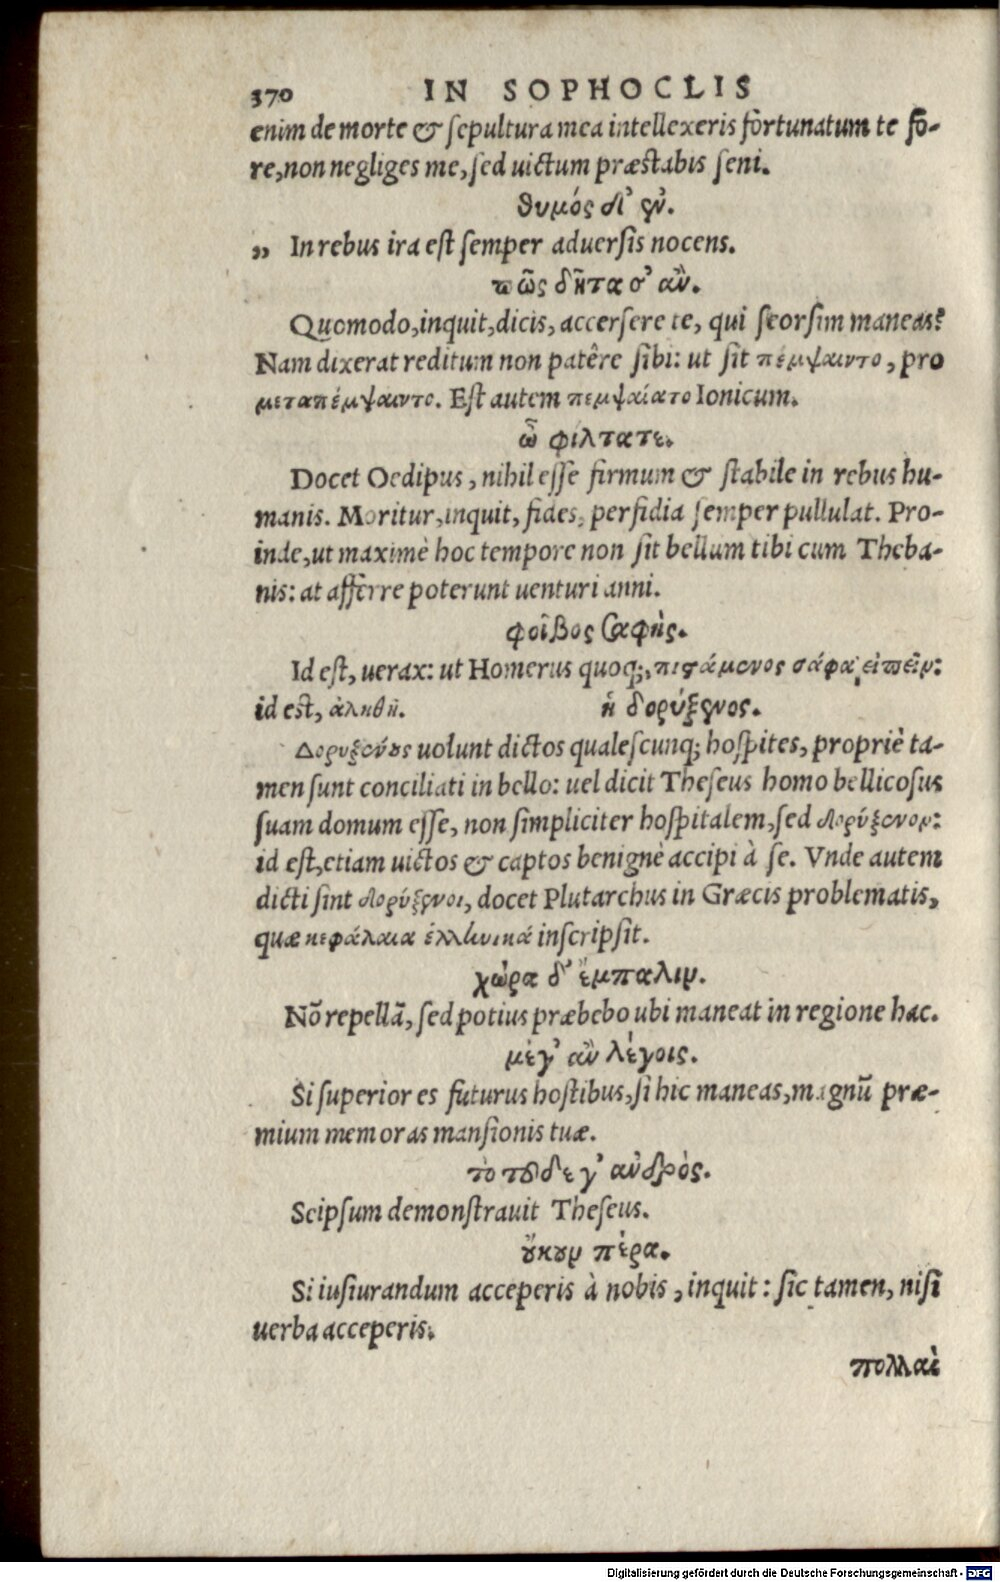 370 IN SOPHOCLIS
enim de morte & sepultura mea intellexeris fortunatum te fo-
re, non negliges me, sed uictum præstabis seni.
θυμός δ' ἐν.
„ In rebus ira est semper aduersis nocens.
πῶς δῆτα σ' ἂν.
Quomodo, inquit, dicis, accersere te, qui seorsim maneas?
Nam dixerat reditum non patêre sibi: ut sit πέμψαιντο, pro
μεταπέμψαιντο. Est autem πεμψαίατο Ionicum.
ὦ φίλτατε.
Docet Oedipus, nihil esse firmum & stabile in rebus hu-
manis. Moritur, inquit, fides, perfidia semper pullulat. Pro-
inde, ut maximè hoc tempore non sit bellum tibi cum Theba-
nis: at afferre poterunt uenturi anni.
φοῖβος σαφὴς.
Id est, uerax: ut Homerus quoq;, πισάμενος σάφα εἰπεῖν:
id est, ἀληθῆ. ἡ δορύξενος.
Δορυξένους uolunt dictos qualescunq; hospites, propriè ta-
men sunt conciliati in bello: uel dicit Theseus homo bellicosus
suam domum esse, non simpliciter hospitalem, sed δορύξενον:
id est, etiam uictos & captos benignè accipi à se. Vnde autem
dicti sint δορύξενοι, docet Plutarchus in Græcis problematis,
quæ κεφάλαια ἑλληνικά inscripsit.
χώρᾳ δ' ἔμπαλιν.
Nō repellā, sed potius præbebo ubi maneat in regione hac.
μέγ' ἂν λέγοις.
Si superior es futurus hostibus, si hic maneas, magnū præ-
mium memoras mansionis tuæ.
τὸ τοῦδε γ' ἀνδρὸς.
Seipsum demonstrauit Theseus.
οὔκουν πέρα.
Si iusiurandum acceperis à nobis, inquit: sic tamen, nisi
uerba acceperis.
πολλαὶ
Digitalisierung gefördert durch die Deutsche Forschungsgemeinschaft - DFG